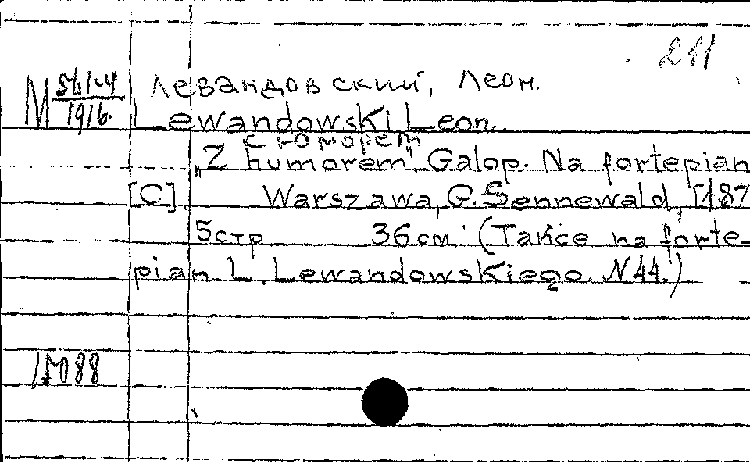 211
M 54/1-4 Левандовский, Леон.
1916. Lewandowski Leon.
с юмором
„Z humorem" Galop. Na fortepian
[C] Warszawa, G. Sennewald, [187
5 стр 36 см (Tańce na forte-
pian L. Lewandowskiego N 44.)
88